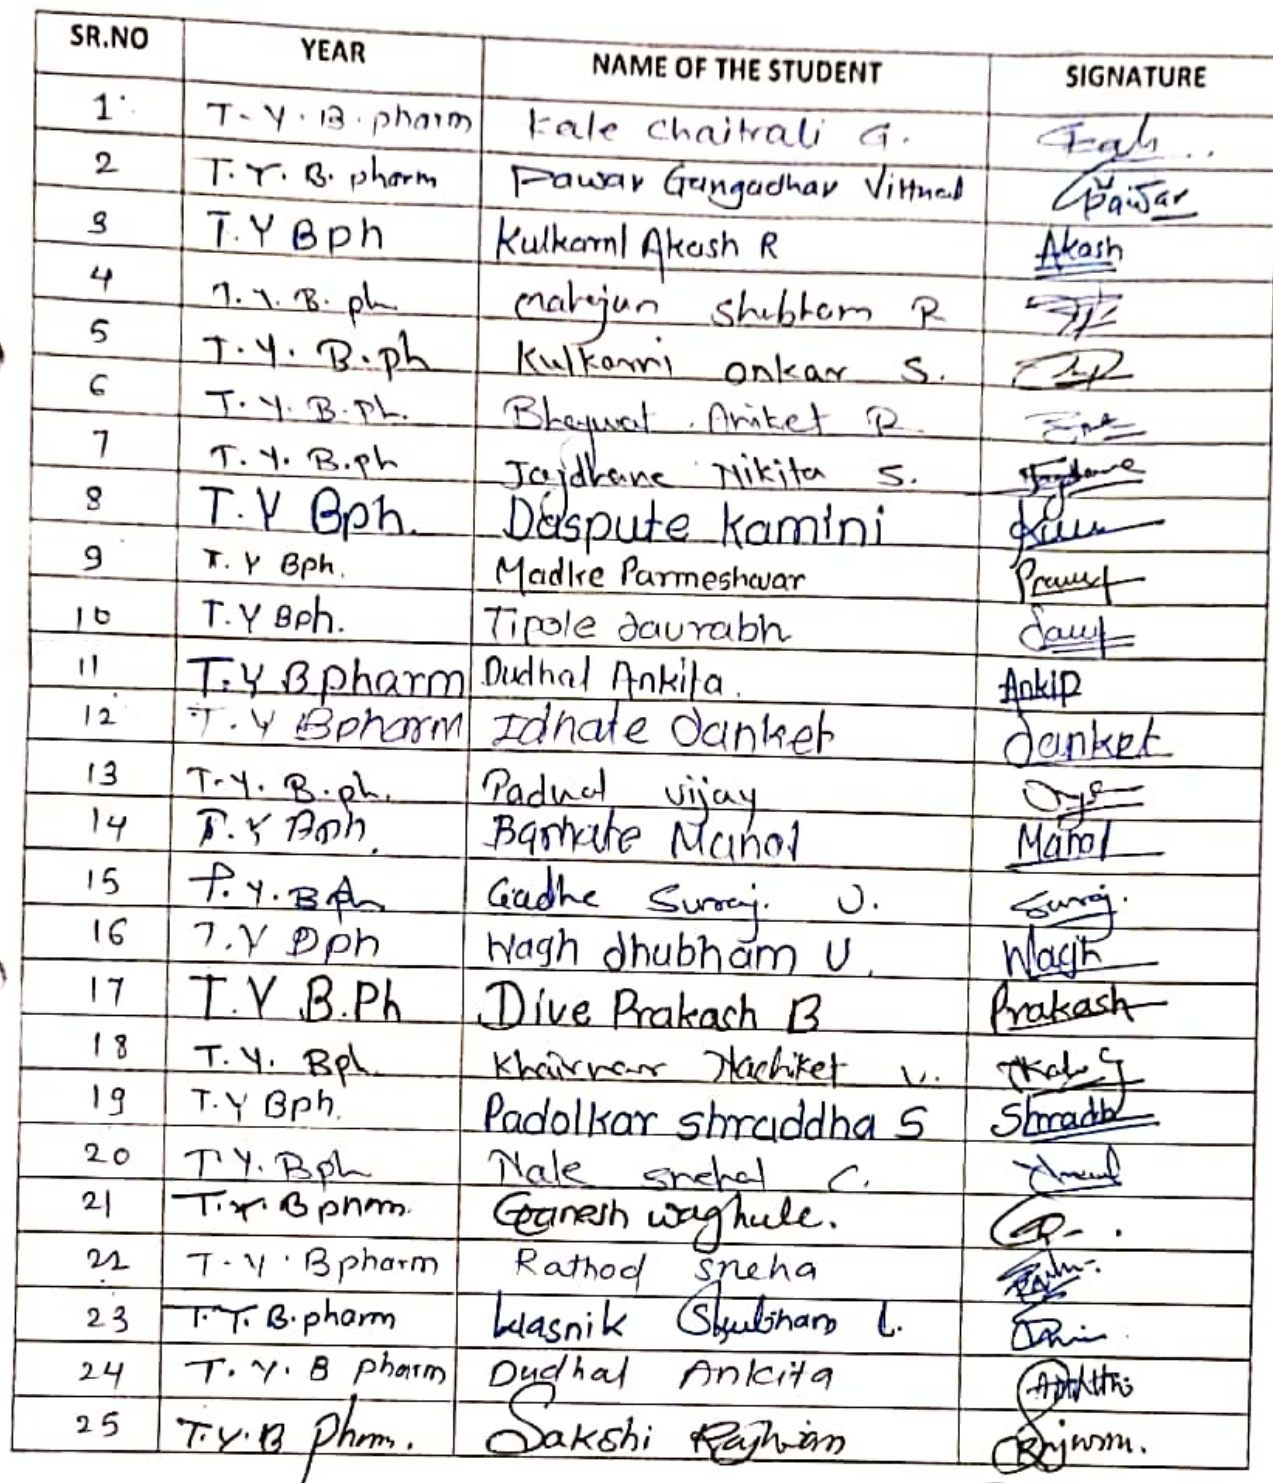 SR.NO YEAR NAME OF THE STUDENT SIGNATURE
1 T.Y.B.pharm Kale Chaitrali G.
2 T.Y.B.pharm Pawar Gangadhar Vitthal Pawar
3 T.Y Bph Kulkarni Akash R Akash
4 T.Y.B.ph Shubham R
5 T.Y.B.ph Kulkarni Onkar S.
6 T.Y.B.Ph. Bhagwat Aniket R
7 T.Y.B.ph Jajdhane Nikita S.
8 T.Y Bph. Daspute Kamini
9 T.Y Bph. Madke Parmeshwar
10 T.Y Bph. Tipole Saurabh
11 T.Y Bpharm Dudhal Ankita Ankip
12 T.Y Bpharm Idhate Sanket Sanket
13 T.Y.B.ph. Padual Vijay
14 T.Y Bph. Barhate Manol Manol
15 T.Y.Bph Gadhe Suraj. U. Suraj.
16 T.Y Bph Wagh Shubham U. Wagh
17 T.Y B.Ph Dive Prakash B Prakash
18 T.Y. Bph Khairnar Nachiket V.
19 T.Y Bph. Padolkar Shraddha S Shradh
20 T.Y.Bph Nale Snehal C.
21 T.Y.Bpham. Ganesh Waghule.
22 T.Y.Bpharm Rathod Sneha
23 T.Y.B.pharm Wasnik Shubham L.
24 T.Y.B pharm Dudhal Ankita
25 T.Y.B Phrm. Sakshi Rajwan